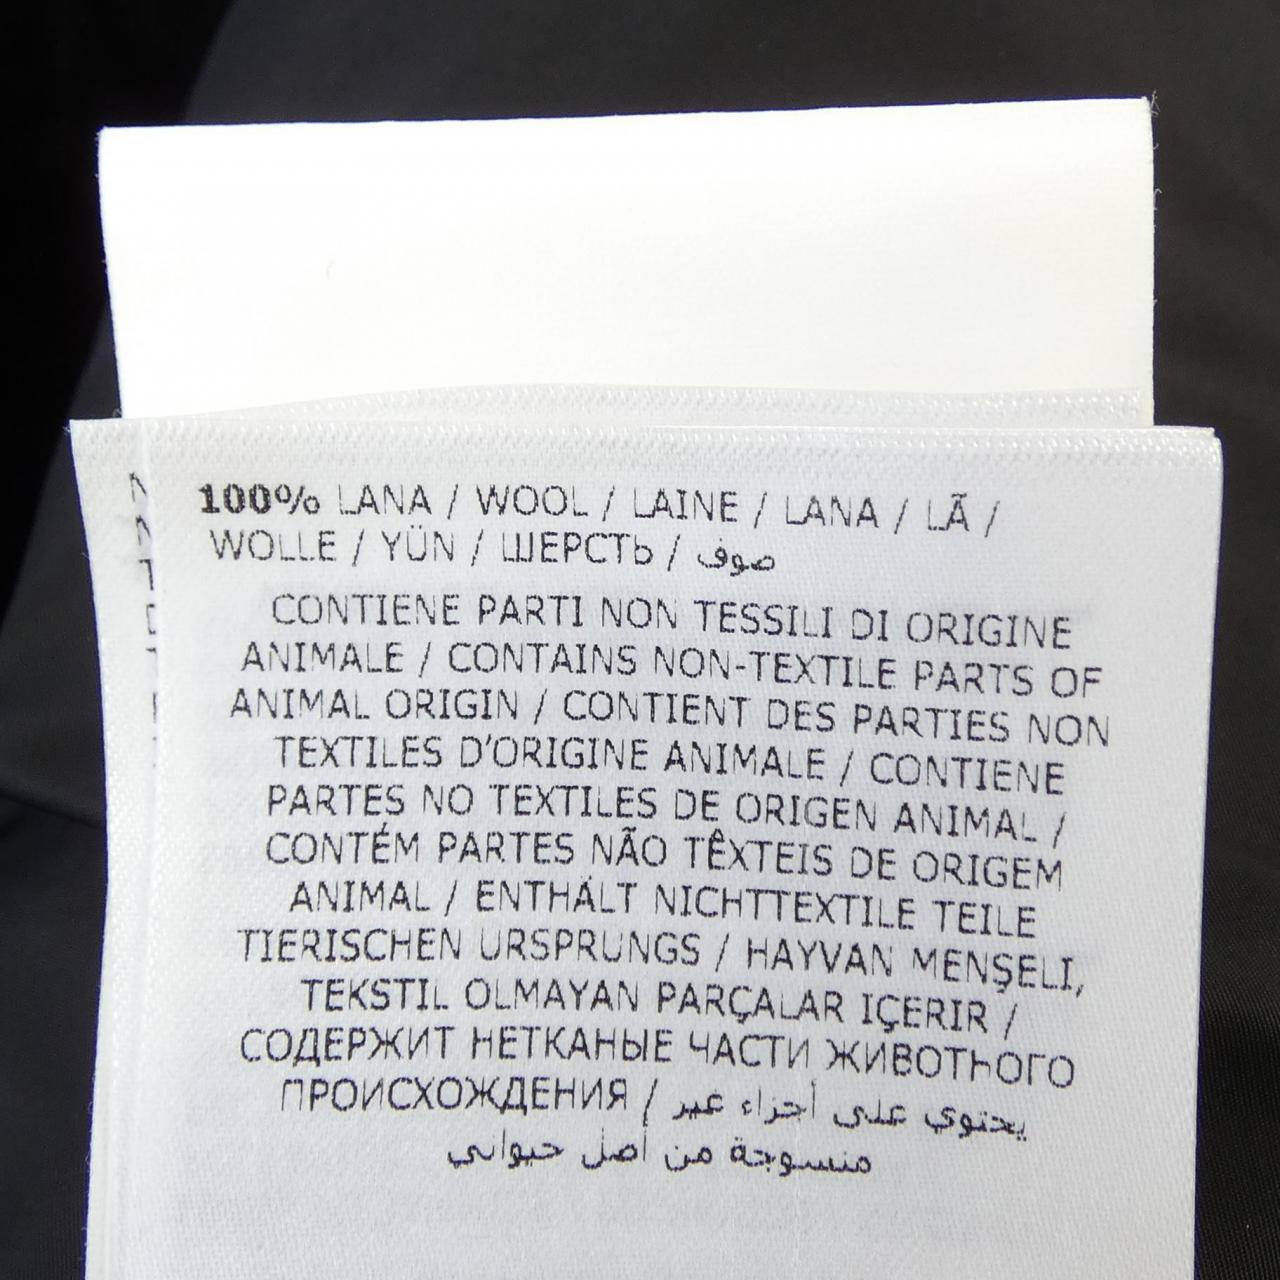 100% LANA / WOOL / LAINE / LANA / LÃ /
WOLLE / YÜN / ШЕРСТЬ / صوف
CONTIENE PARTI NON TESSILI DI ORIGINE
ANIMALE / CONTAINS NON-TEXTILE PARTS OF
ANIMAL ORIGIN / CONTIENT DES PARTIES NON
TEXTILES D'ORIGINE ANIMALE / CONTIENE
PARTES NO TEXTILES DE ORIGEN ANIMAL /
CONTÉM PARTES NÃO TÊXTEIS DE ORIGEM
ANIMAL / ENTHÄLT NICHTTEXTILE TEILE
TIERISCHEN URSPRUNGS / HAYVAN MENŞELI,
TEKSTIL OLMAYAN PARÇALAR IÇERIR /
СОДЕРЖИТ НЕТКАНЫЕ ЧАСТИ ЖИВОТНОГО
ПРОИСХОЖДЕНИЯ / يحتوي على أجزاء غير
منسوجة من أصل حيواني